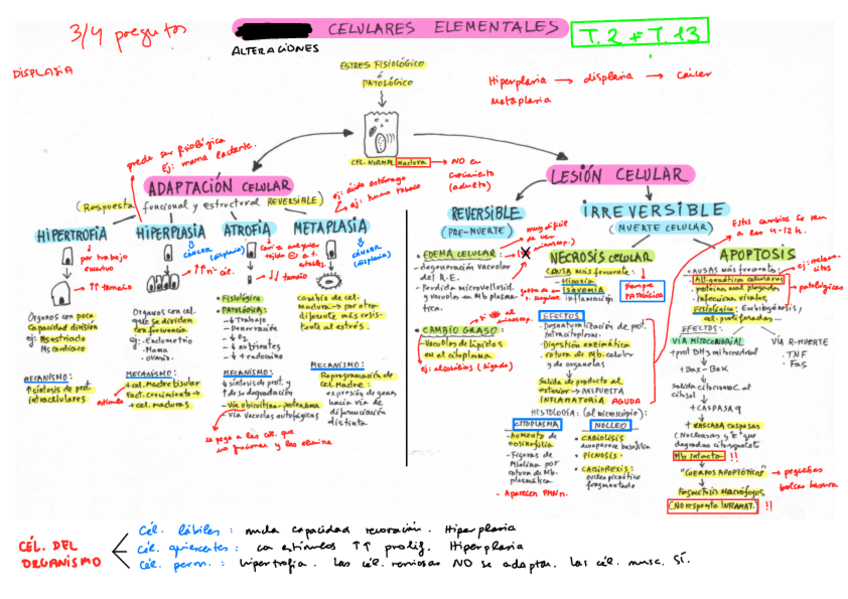 3/4 preguntas
CELULARES ELEMENTALES
T.2 + T.13
ALTERACIONES
DISPLASIA
ESTRES FISIOLÓGICO
ó
PATOLÓGICO
Hiperplasia → displasia → cáncer
Metaplasia
CEL. NORMAL madura → NO en
crecimiento
(adulto)
puede ser fisiológica
Ej: mama lactante.
ADAPTACIÓN CELULAR
(Respuesta funcional y estructural REVERSIBLE)
ej: ácido estómago
ej: humo tabaco
HIPERTROFIA
por trabajo
excesivo
↑↑ tamaño
Órganos con poca
capacidad división
ej: Ms estriado
Ms cardiaco
MECANISMO:
↑ síntesis de prot.
intracelulares
HIPERPLASIA
CÁNCER
(displasia)
↑↑ nº cél.
Órganos con cel.
que se dividen
con frecuencia
ej: Endometrio
- Mama
- ovario.
MECANISMO:
+ cel. Madre tisular
Fact. crecimiento →
+ cel. maduras
estímulo
ATROFIA
↓↓ tamaño
• Fisiológica
• PATOLÓGICA:
- ↓ trabajo
- Denervación
- ↓ O2
- ↓ nutrientes
- ↓ endocrino
MECANISMO:
↓ síntesis de prot. y
↑ de su degradación
- vía ubicuitina-proteasoma
- vía vacuolas autofágicas
se pega a las cél. que
no funcionan y las elimina
METAPLASIA
CÁNCER
(displasia)
cambio de cel.
madura → por otra
diferente más resis-
tente al estrés.
MECANISMO:
Reprogramación de
cel Madre:
expresión de genes
hacia vía de
diferenciación
distinta
LESIÓN CELULAR
REVERSIBLE
(PRE-MUERTE)
muy difícil
de ver
(microscop.)
• EDEMA CELULAR:
- degeneración vacuolar
del R.E.
- perdida microvellosid.
y vacuolas en Mb plasma-
tica.
• CAMBIO GRASO:
sí al microscop.
- Vacuolas de lípidos
en el citoplasma
ej: alcohólicos (hígado)
IRREVERSIBLE
(MUERTE CELULAR)
Estos cambios se ven
a las 4-12 h.
NECROSIS CELULAR
CAUSA más frecuente:
- Hipoxia
- Isquemia
- inflamación
siempre
PATOLÓGICA
EFECTOS
- Desnaturalización de prot.
intracitoplasm.
- Digestión enzimática
- rotura de Mb. celular
y de orgánulos
Salida de producto al
exterior → RESPUESTA
INFLAMATORIA AGUDA
HISTOLOGÍA: (al microscopio):
CITOPLASMA
- Aumento de
eosinofilia
- Figuras de
Mielina por
rotura de Mb.
plasmática
- Aparecen PMNn.
NÚCLEO
• CARIOLISIS
desaparece basofilia
• PICNOSIS
• CARIORREXIS:
núcleo picnótico
fragmentado
APOPTOSIS
CAUSAS más frecuentes:
- Alt. genética celulares
- proteína mal plegada
- Infecciones virales
patológicas
Fisiológico: Embriogénesis,
cel. proliferadas...
EFECTOS:
VÍA MITOCONDRIAL
+ Bax - Bak
Salida citocromo C al
citosol
+ CASPASA 9
+ CASCADA caspasas
(Nucleasas y
degradan citoesqueleto
Mb intacta !!
"CUERPOS APOPTÓTICOS" → pequeñas
bolsas basura
Fagocitosis Macrófagos
(NO respuesta INFLAMAT.) !!
VÍA R-MUERTE
- TNF
- Fas
CÉL. DEL
ORGANISMO
Cél. lábiles: mucha capacidad renovación. Hiperplasia
Cél. quiescentes: con estímulos ↑↑ prolif. Hiperplasia
Cél. perm.: hipertrofia. Las cél. nerviosas NO se adaptan. Las cél. musc. SÍ.